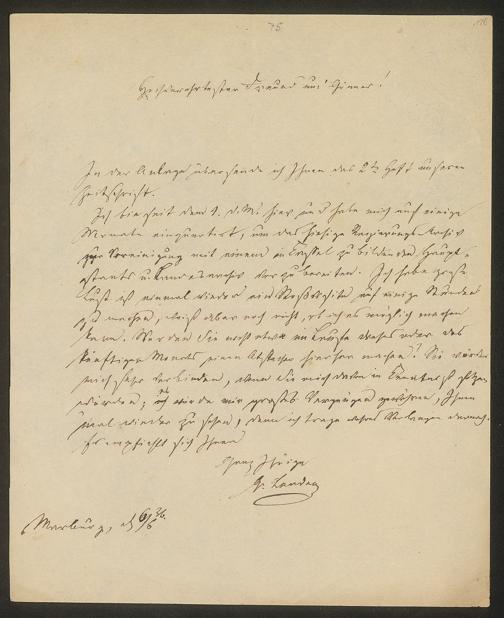 75
Hochverehrtester Freund und Gönner!
In der Anlage übersende ich Ihnen das 2te Heft unserer
Zeitschrift.
Ich bin seit dem 1. d. M. hier und habe mich auf einige
Monate einquartirt, um das hiesige Regierungs-Archiv
zur Vereinigung mit einem in Cassel zu bildenden Haupt-
staats u. Landesarchiv vorzubereiten. Ich habe große
Lust einmal wieder ein auf einige Stunden
zu machen, weiß aber noch nicht, ob ich es möglich machen
kann. Werden Sie nicht etwa im Laufe dieses oder des
künftigen Monats einen Abstecher hierher machen? Sie würden
mich sehr verbinden, wenn Sie mich davon in Kenntniß setzen
würden; es würde mir großes Vergnügen gewähren, Sie
mal wieder zu sehen, denn ich trage wahres Verlangen darnach.
Es empfiehlt sich Ihnen
Ganz Ihrige
G. Landau
Marburg, d